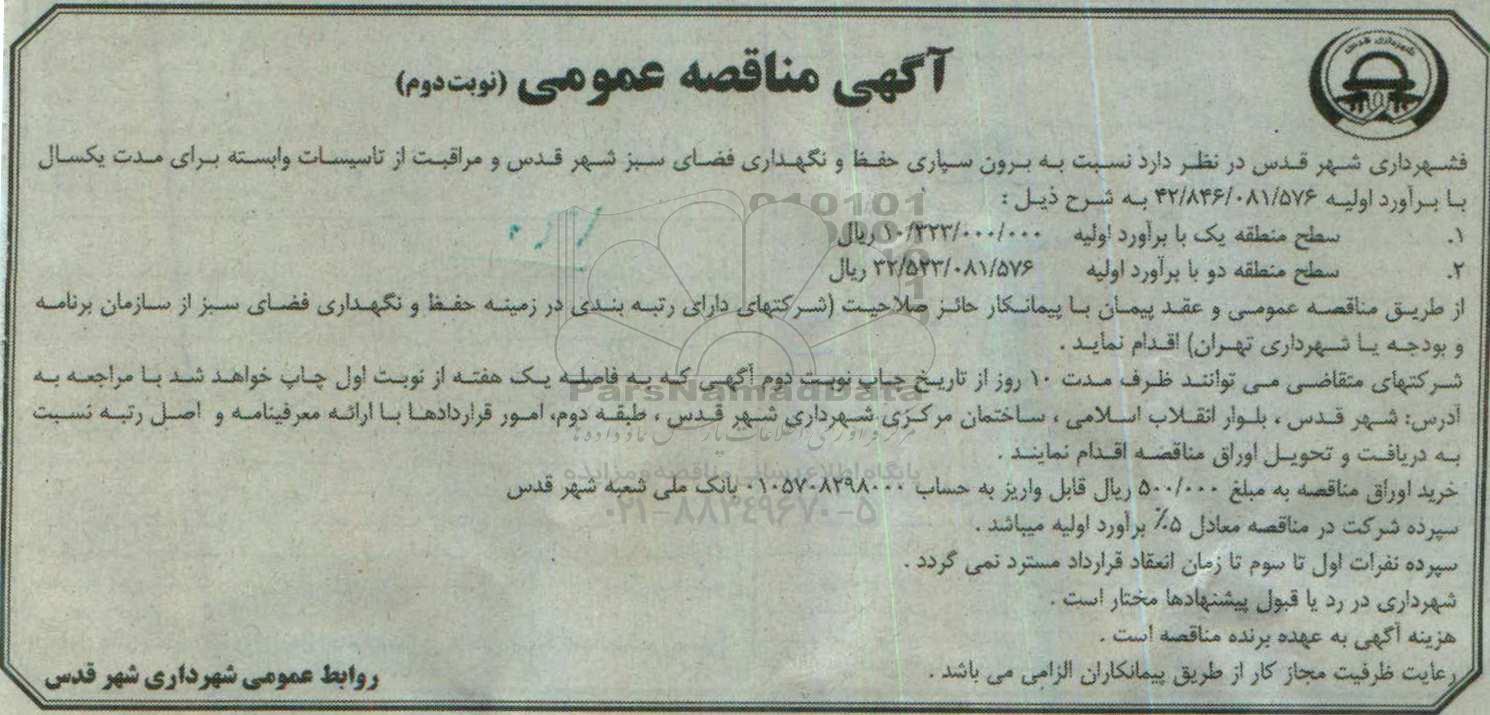 شهرداری قدس
آگهی مناقصه عمومی (نوبت دوم)
فشهرداری شهر قدس در نظر دارد نسبت به برون سپاری حفظ و نگهداری فضای سبز شهر قدس و مراقبت از تاسیسات وابسته برای مدت یکسال
با برآورد اولیه ۴۲/۸۴۶/۰۸۱/۵۷۶ به شرح ذیل :
۱. سطح منطقه یک با برآورد اولیه ۱۰/۳۲۳/۰۰۰/۰۰۰ ریال
۲. سطح منطقه دو با برآورد اولیه ۳۲/۵۲۳/۰۸۱/۵۷۶ ریال
از طریق مناقصه عمومی و عقد پیمان با پیمانکار حائز صلاحیت (شرکتهای دارای رتبه بندی در زمینه حفظ و نگهداری فضای سبز از سازمان برنامه
و بودجه یا شهرداری تهران) اقدام نماید .
شرکتهای متقاضی می توانند ظرف مدت ۱۰ روز از تاریخ چاپ نوبت دوم آگهی که به فاصله یک هفته از نوبت اول چاپ خواهد شد با مراجعه به
آدرس: شهر قدس ، بلوار انقلاب اسلامی ، ساختمان مرکزی شهرداری شهر قدس ، طبقه دوم، امور قراردادها با ارائه معرفینامه و اصل رتبه نسبت
به دریافت و تحویل اوراق مناقصه اقدام نمایند .
خرید اوراق مناقصه به مبلغ ۵۰۰/۰۰۰ ریال قابل واریز به حساب ۰۱۰۵۷۰۸۲۹۸۰۰۰ بانک ملی شعبه شهر قدس
سپرده شرکت در مناقصه معادل ۵٪ برآورد اولیه میباشد .
سپرده نفرات اول تا سوم تا زمان انعقاد قرارداد مسترد نمی گردد .
شهرداری در رد یا قبول پیشنهادها مختار است .
هزینه آگهی به عهده برنده مناقصه است .
رعایت ظرفیت مجاز کار از طریق پیمانکاران الزامی می باشد .
روابط عمومی شهرداری شهر قدس
ParsNamadData
پایگاه اطلاع رسانی مناقصه و مزایده
۰۲۱-۸۸۳۴۹۶۷۰-۵